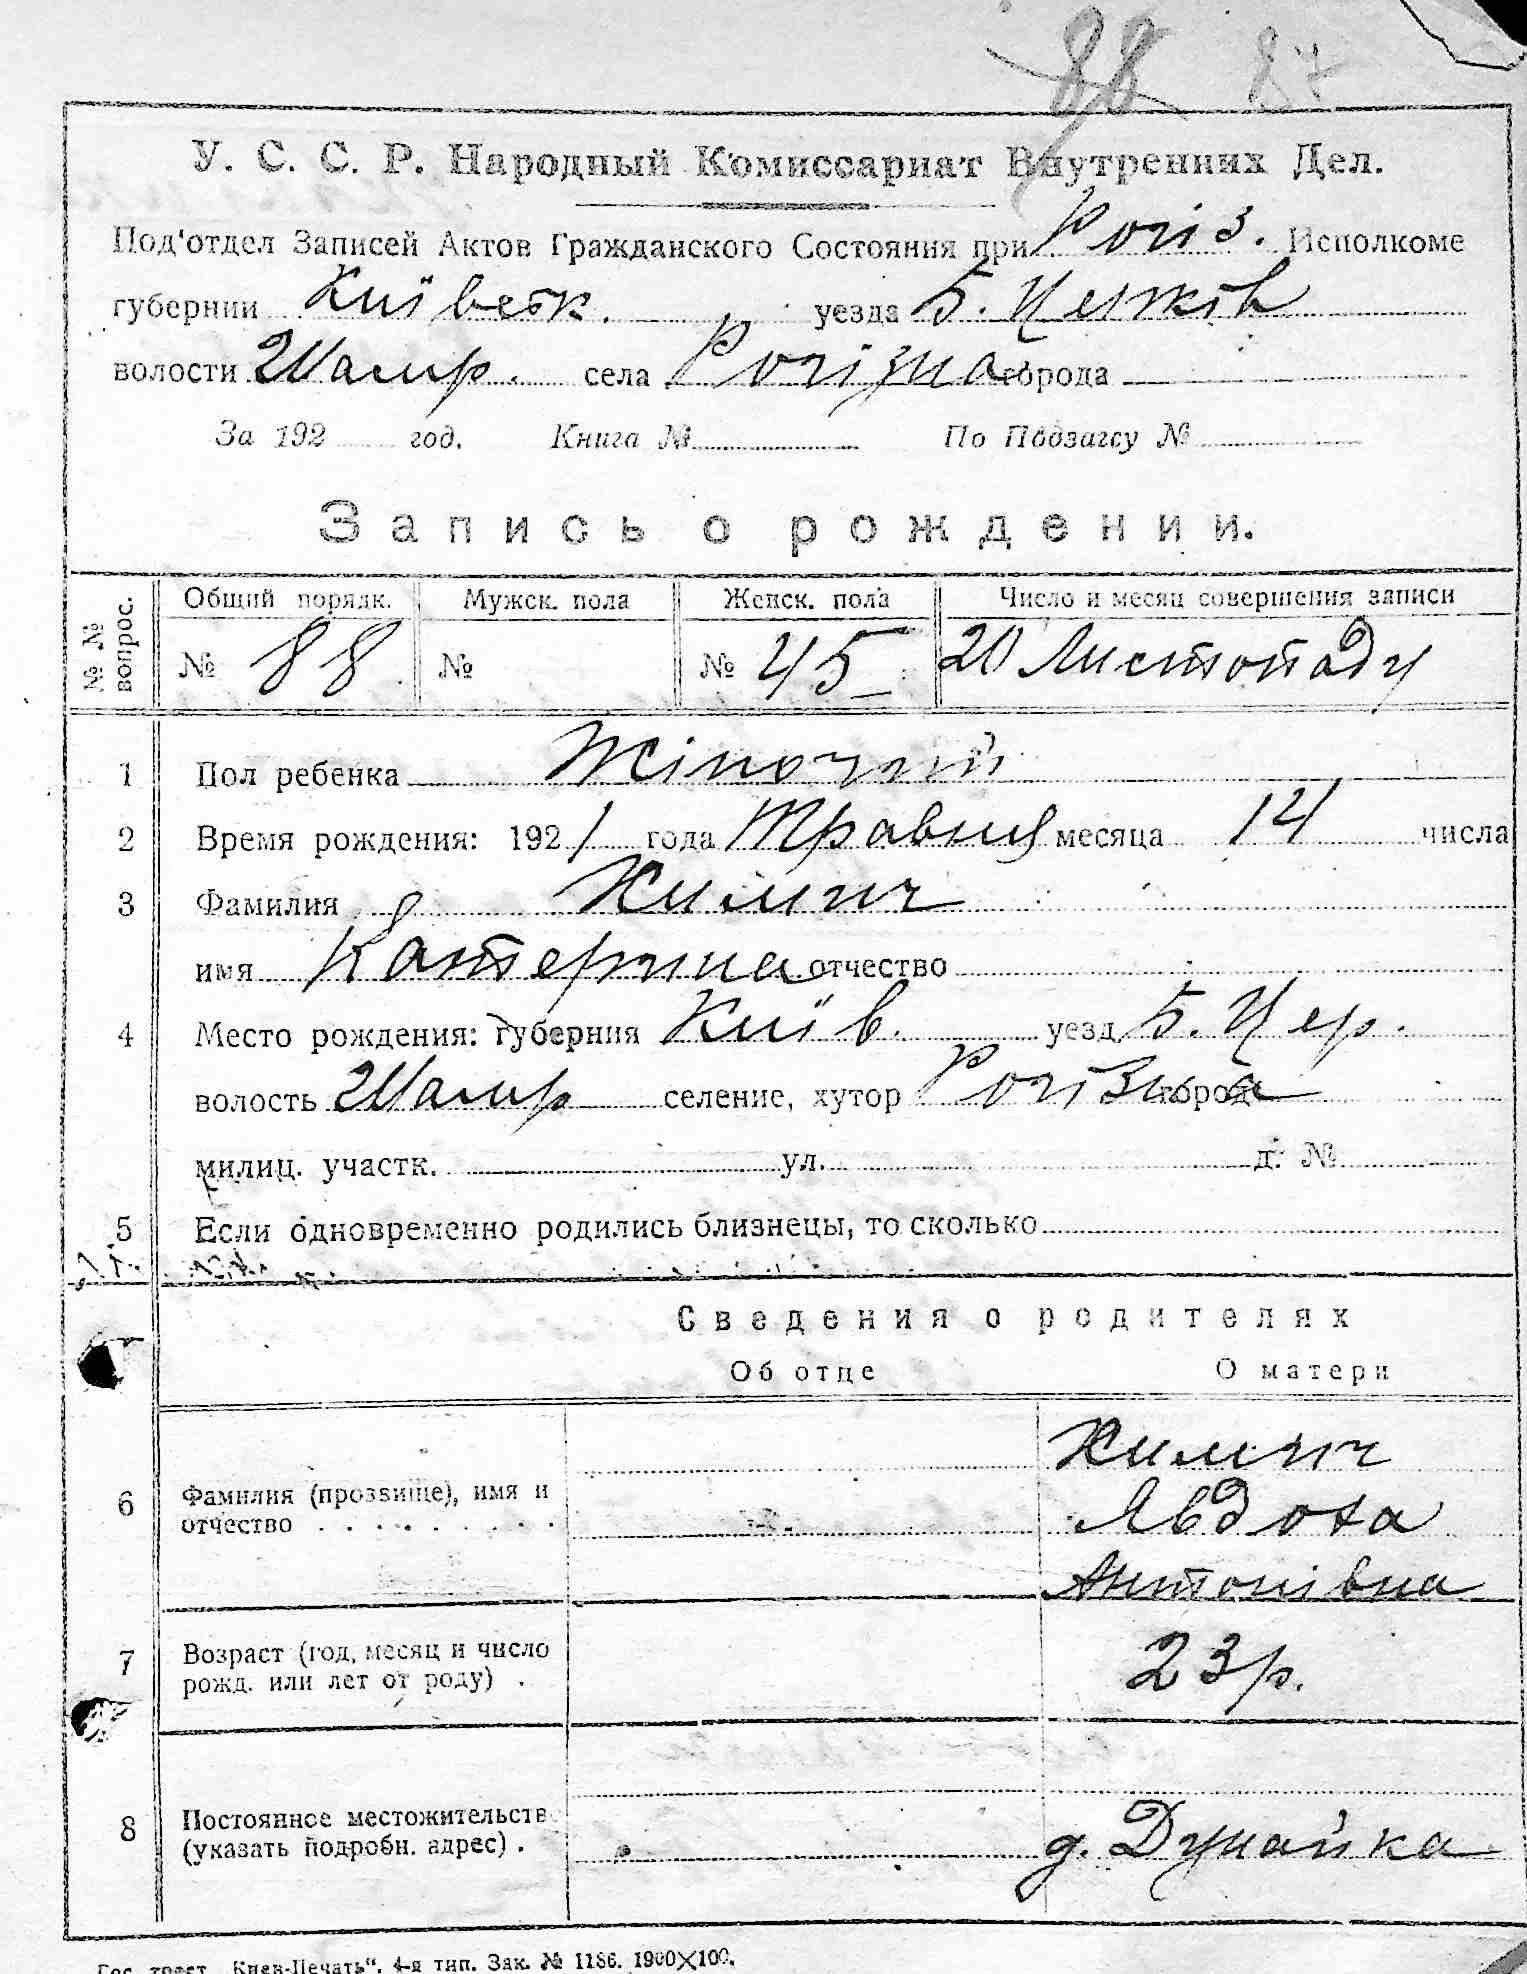 88 87
У. С. С. Р. Народный Комиссариат Внутренних Дел.
Под'отдел Записей Актов Гражданского Состояния при Рогіз. Исполкоме
губернии Київськ. уезда Б. Церків
волости Шамр. села Рогізна города
За 192 год. Книга № По Подзагсу №
Запись о рождении.
№ № вопрос. Общий порядк. Мужск. пола Женск. пола Число и месяц совершения записи
№ 88 № № 45 20 Листопаду
1 Пол ребенка Жіночий
2 Время рождения: 1921 года Травня месяца 14 числа
3 Фамилия Химич
имя Катерина отчество
4 Место рождения: губерния Київ. уезд Б. Цер.
волость Шамр селение, хутор Рогізна город
милиц. участк. ул. д. №
5 Если одновременно родились близнецы, то сколько
Сведения о родителях
Об отце О матери
Химич
6 Фамилия (прозвище), имя и
отчество Явдоха
Антонівна
7 Возраст (год, месяц и число
рожд. или лет от роду) . 23 р.
8 Постоянное местожительств
(указать подробн. адрес) . д. Дунайка
Гос. трест „Киев-Печать“. 4-я тип. Зак. № 1186. 1900×100.